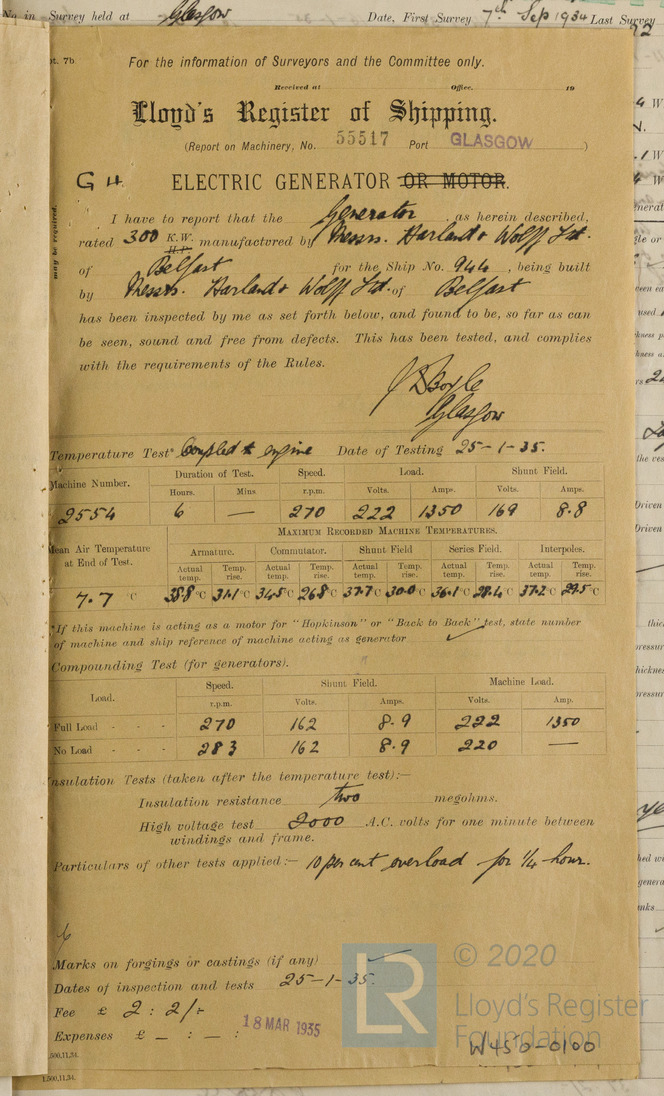 No in Survey held at Glasgow Date, First Survey 7th Sep 1934 Last Survey
pt. 7b
For the information of Surveyors and the Committee only.
Received at Office. 19
Lloyd's Register of Shipping.
(Report on Machinery, No. 55517 Port GLASGOW )
G 4. ELECTRIC GENERATOR OR MOTOR.
I have to report that the Generator as herein described,
rated 300 K.W. H.P. manufactured by Messrs. Harland & Wolff Ltd.
of Belfast for the Ship No. 944, being built
by Messrs. Harland & Wolff Ltd. of Belfast
has been inspected by me as set forth below, and found to be, so far as can
be seen, sound and free from defects. This has been tested, and complies
with the requirements of the Rules.
may be required.
Boyle
Glasgow
Temperature Test* Coupled to engine Date of Testing 25-1-35.
Machine Number. Duration of Test. Speed. Load. Shunt Field.
Hours. Mins r.p.m. Volts. Amps. Volts. Amps.
2554 6 — 270 222 1350 169 8.8
Mean Air Temperature at End of Test. MAXIMUM RECORDED MACHINE TEMPERATURES.
Armature. Commutator. Shunt Field Series Field. Interpoles.
Actual temp. Temp. rise. Actual temp. Temp. rise. Actual temp. Temp. rise. Actual temp. Temp. rise. Actual temp. Temp. rise.
7.7 °C 38.8 °C 31.1 °C 34.5 °C 26.8 °C 37.7 °C 30.0 °C 36.1 °C 28.4 °C 37.2 °C 29.5 °C
*If this machine is acting as a motor for "Hopkinson" or "Back to Back" test, state number
of machine and ship reference of machine acting as generator
Compounding Test (for generators).
Load. Speed. Shunt Field. Machine Load.
r.p.m. Volts. Amps. Volts. Amp.
Full Load - - - 270 162 8.9 222 1350
No Load - - - 283 162 8.9 220 —
Insulation Tests (taken after the temperature test):—
Insulation resistance two megohms.
High voltage test 2000 A.C. volts for one minute between
windings and frame.
Particulars of other tests applied:— 10 per cent overload for 1/4 hour.
Marks on forgings or castings (if any)
Dates of inspection and tests 25-1-35.
Fee £ 2 : 2/-
Expenses £ — : — :
18 MAR 1935
LR
© 2020
Lloyd's Register
Foundation
W450-0100
,500,11,34.
1,500,11,34.